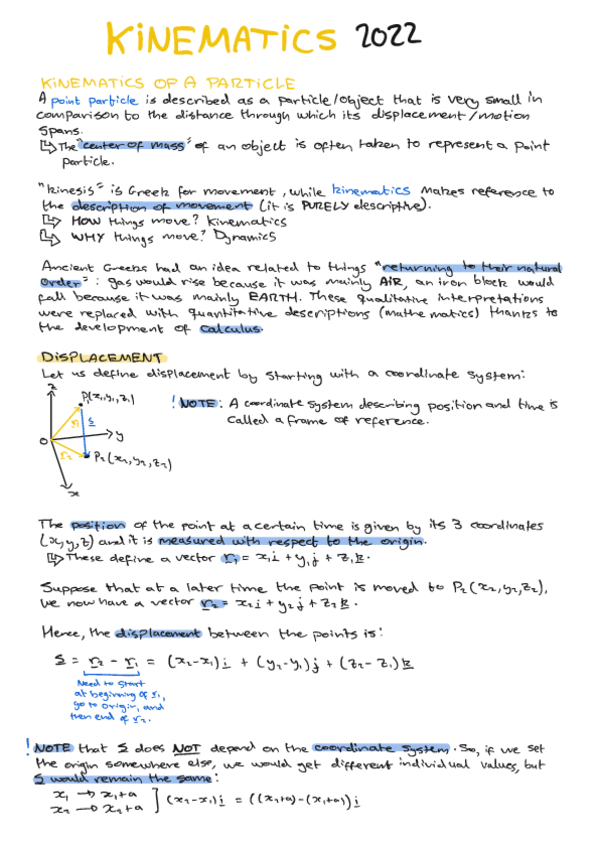 KINEMATICS 2022
KINEMATICS OF A PARTICLE
A point particle is described as a particle/object that is very small in
comparison to the distance through which its displacement/motion
spans.
↳ The "center of mass" of an object is often taken to represent a point
particle.
"kinesis" is Greek for movement, while kinematics makes reference to
the description of movement (it is PURELY descriptive).
↳ HOW things move? Kinematics
↳ WHY things move? Dynamics
Ancient Greeks had an idea related to things "returning to their natural
order": gas would rise because it was mainly AIR, an iron block would
fall because it was mainly EARTH. These qualitative interpretations
were replaced with quantitative descriptions (mathematics) thanks to
the development of calculus.
DISPLACEMENT
Let us define displacement by starting with a coordinate system:
z
P₁(x₁,y₁,z₁)
! NOTE: A coordinate system describing position and time is
called a frame of reference.
r₁ s
O y
r₂ P₂(x₂,y₂,z₂)
x
The position of the point at a certain time is given by its 3 coordinates
(x,y,z) and it is measured with respect to the origin.
↳ These define a vector r₁ = x₁i + y₁j + z₁k.
Suppose that at a later time the point is moved to P₂(x₂,y₂,z₂),
we now have a vector r₂ = x₂i + y₂j + z₂k.
Hence, the displacement between the points is:
s = r₂ - r₁ = (x₂-x₁)i + (y₂-y₁)j + (z₂-z₁)k
Need to start
at beginning of r₁,
go to origin, and
then end of r₂.
! NOTE that s does NOT depend on the coordinate system. So, if we set
the origin somewhere else, we would get different individual values, but
s would remain the same:
x₁ → x₁+a
x₂ → x₂+a ] (x₂-x₁)i = ((x₂+a)-(x₁+a))i